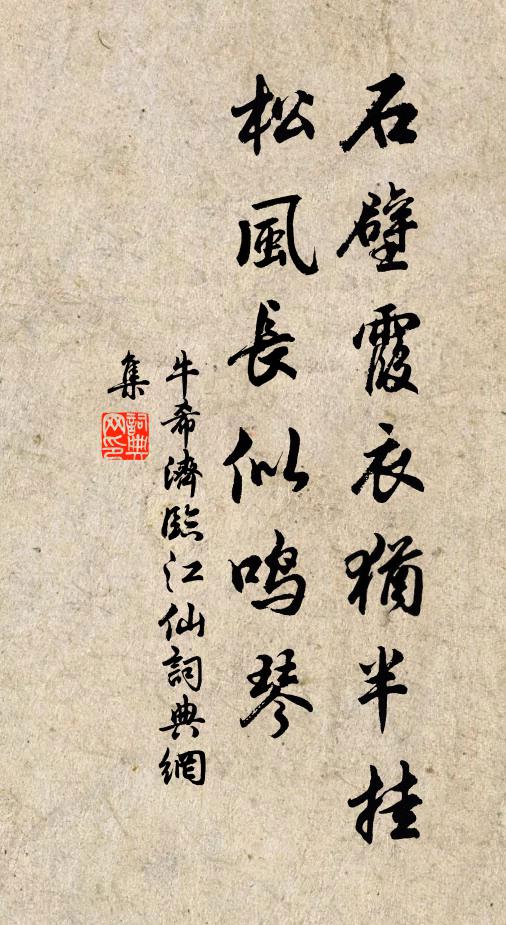 石壁霞衣猶半挂
松風長似鳴琴
牛希濟臨江仙詞典網
集
詞典網印